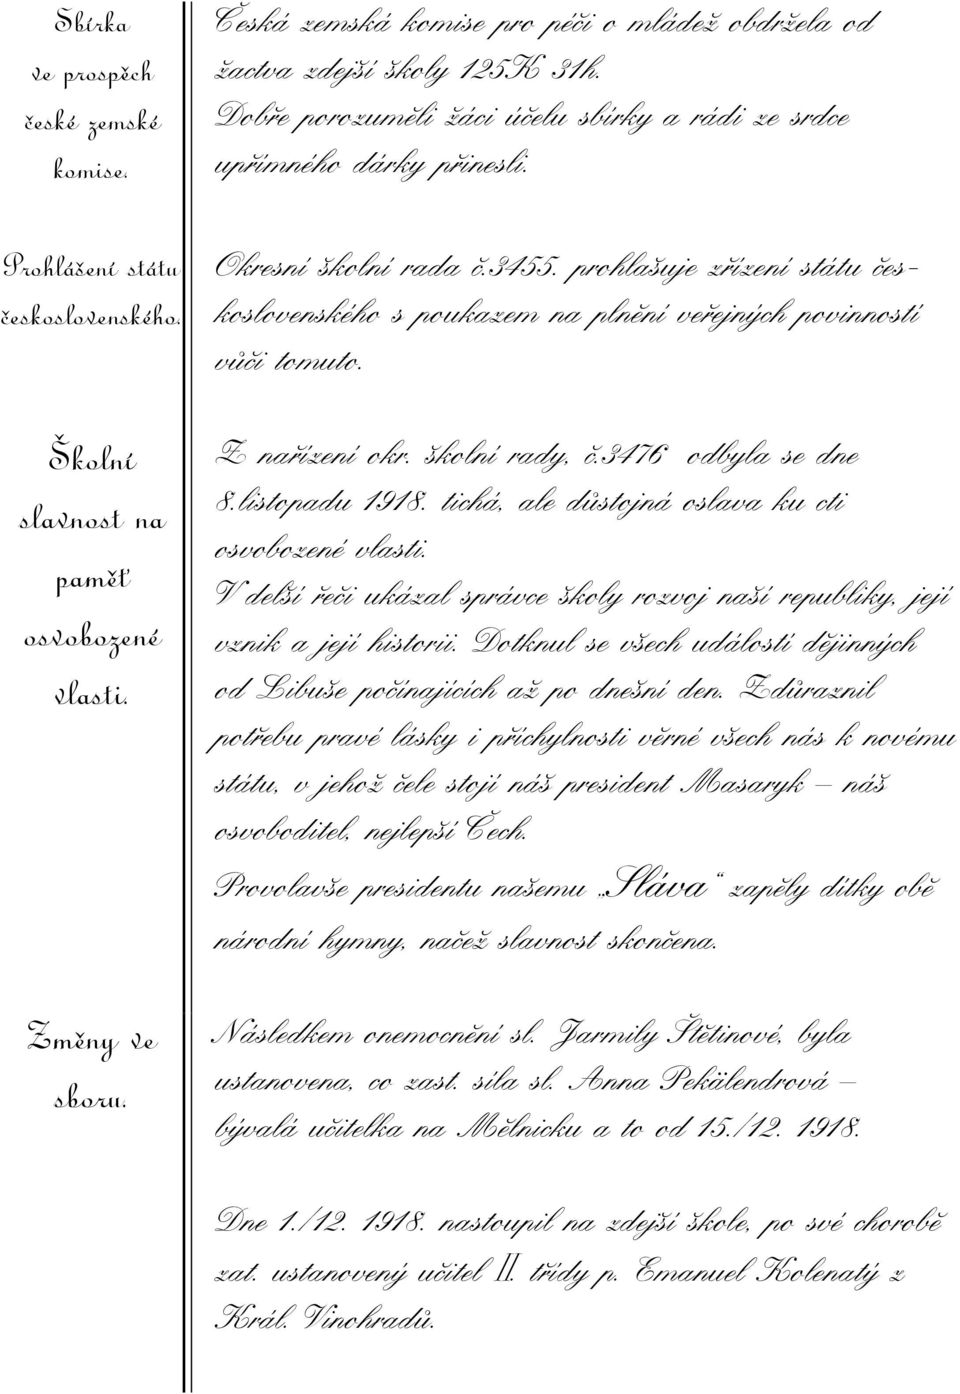 Sbírka
ve prospěch
české zemské
komise.
Česká zemská komise pro péči o mládež obdržela od
žactva zdejší školy 125K 31h.
Dobře porozuměli žáci účelu sbírky a rádi ze srdce
upřímného dárky přinesli.
Prohlášení státu
československého.
Okresní školní rada č.3455. prohlašuje zřízení státu čes-
koslovenského s poukazem na plnění veřejných povinností
vůči tomuto.
Školní
slavnost na
paměť
osvobozené
vlasti.
Z nařízení okr. školní rady, č.3476 odbyla se dne
8.listopadu 1918. tichá, ale důstojná oslava ku cti
osvobozené vlasti.
V delší řeči ukázal správce školy rozvoj naší republiky, její
vznik a její historii. Dotknul se všech událostí dějinných
od Libuše počínajících až po dnešní den. Zdůraznil
potřebu pravé lásky i příchylnosti věrné všech nás k novému
státu, v jehož čele stojí náš president Masaryk – náš
osvoboditel, nejlepší Čech.
Provolavše presidentu našemu „Sláva“ zapěly dítky obě
národní hymny, načež slavnost skončena.
Změny ve
sboru.
Následkem onemocnění sl. Jarmily Štětinové, byla
ustanovena, co zast. síla sl. Anna Pekälendrová –
bývalá učitelka na Mělnicku a to od 15./12. 1918.
Dne 1./12. 1918. nastoupil na zdejší škole, po své chorobě
zat. ustanovený učitel II. třídy p. Emanuel Kolenatý z
Král. Vinohradů.